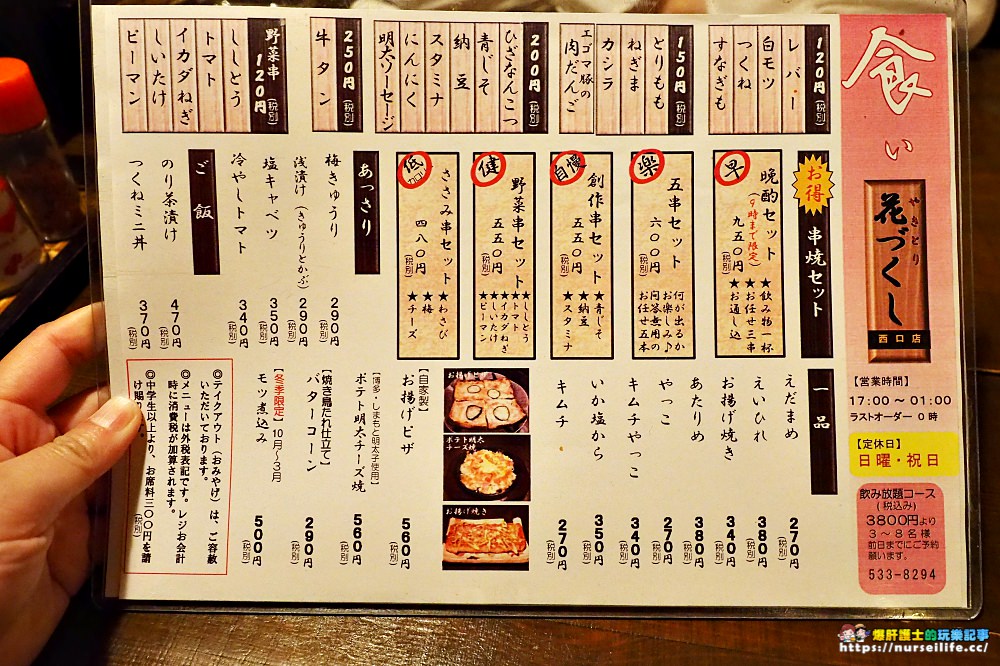 食い
やきとり
花づくし
西口店
【営業時間】
17:00 ～ 01:00
ラストオーダー 0時
【定休日】
日曜・祝日
飲み放題コース
(税込み)
3800円より
3～8名様
前日までにご予約
願います。
533-8294
120円(税別)
レバー
白モツ
つくね
すなぎも
150円(税別)
とりもも
ねぎま
カシラ
エゴマ豚の
肉だんご
200円(税別)
ひざなんこつ
青じそ
納豆
スタミナ
にんにく
明太ソーセージ
250円(税別)
牛タン
野菜串
120円(税別)
ししとう
トマト
イカダねぎ
しいたけ
ピーマン
お得
串焼セット
早
晩酌セット
(9時まで限定)
九五〇円
(税別)
★飲み物一杯
★お任せ三串
★お通し込
楽
五串セット
六〇〇円
(税別)
何が出るか
お楽しみ♪
同答無用の
お任せ五本
自慢
創作串セット
五五〇円
(税別)
★青じそ
★納豆
★スタミナ
健
野菜串セット
五五〇円
(税別)
★ししとう
★トマト
★イカダねぎ
★しいたけ
★ピーマン
低
カロリー
ささみ串セット
四八〇円
(税別)
★わさび
★梅
★チーズ
あっさり
梅きゅうり
290円(税別)
浅漬け(きゅうりとかぶ)
290円(税別)
塩キャベツ
350円(税別)
冷やしトマト
340円(税別)
ご飯
のり茶漬け
470円(税別)
つくねミニ丼
370円(税別)
一品
えだまめ
270円(税別)
えいひれ
380円(税別)
お揚げ焼き
340円(税別)
あたりめ
380円(税別)
やっこ
270円(税別)
キムチやっこ
340円(税別)
いか塩から
350円(税別)
キムチ
270円(税別)
お揚げピザ
ポテト明太
チーズ焼
お揚げ焼き
【自家製】
お揚げピザ
560円(税別)
【博多・しまもと明太子使用】
ポテト明太チーズ焼
560円(税別)
【焼き鳥だれ仕立て】
バターコーン
290円(税別)
【冬季限定】10月～3月
モツ煮込み
500円(税別)
◎テイクアウト(おみやげ)は、ご容赦
いただいております。
◎メニューは外税表記です。レジお会計
時に消費税が加算されます。
◎中学生以上より、お席料三〇〇円を請
け賜り
す。
(税別)
爆肝護士的玩樂記事
https://nurseilife.cc/